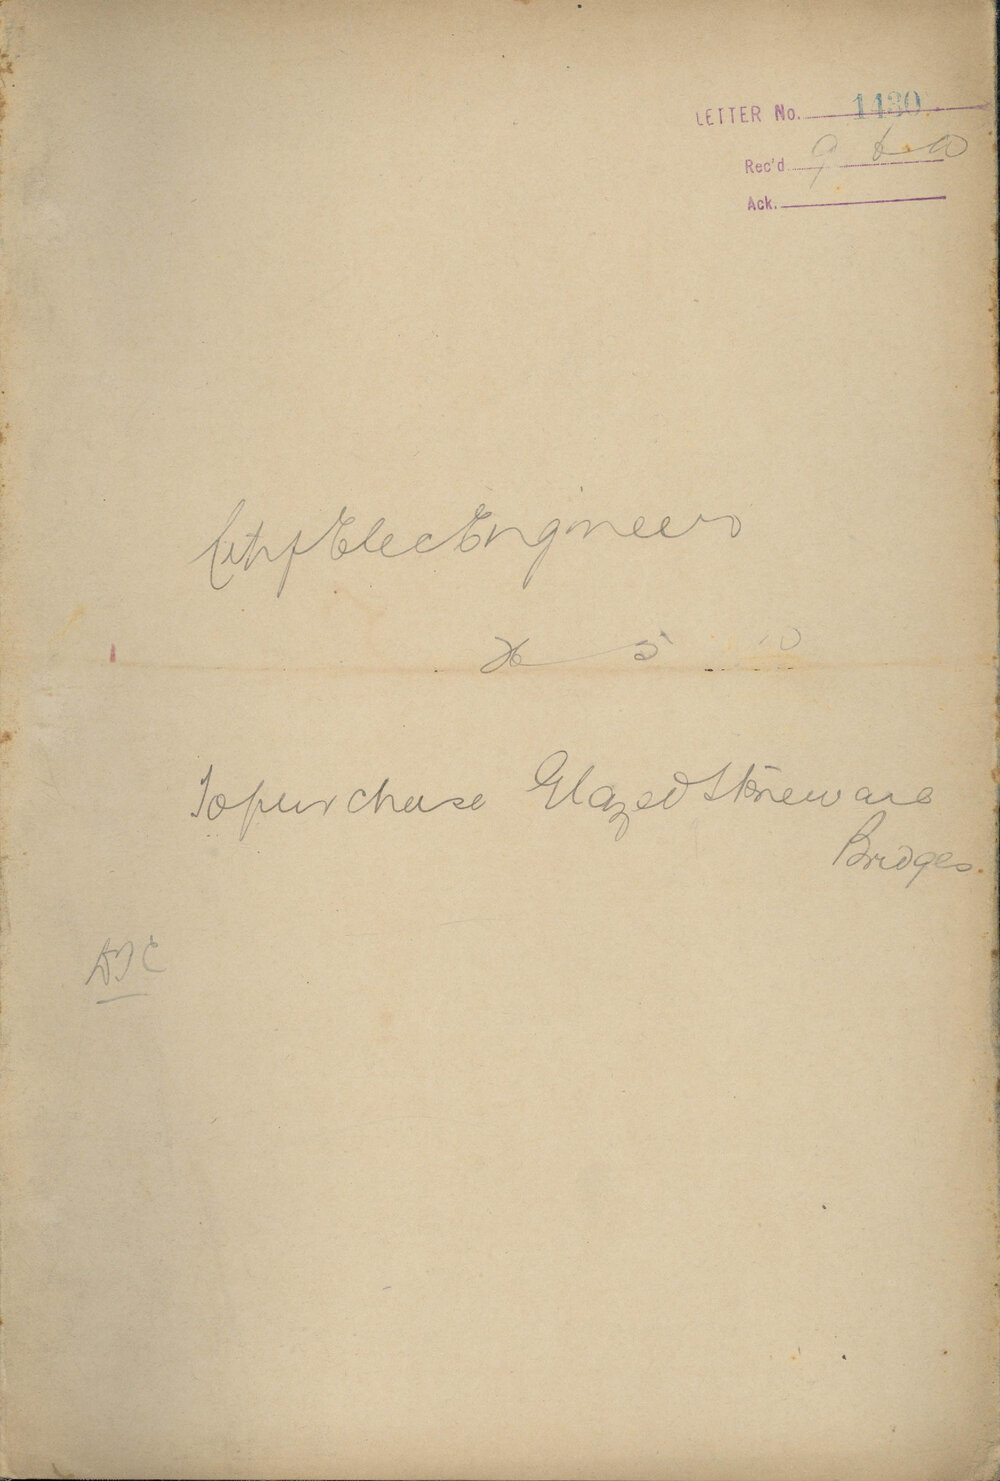 LETTER No. 1430
Rec'd 9 6 10
Ack.
City Elec Engineer
5 10
To purchase Glazed Stoneware
Bridges